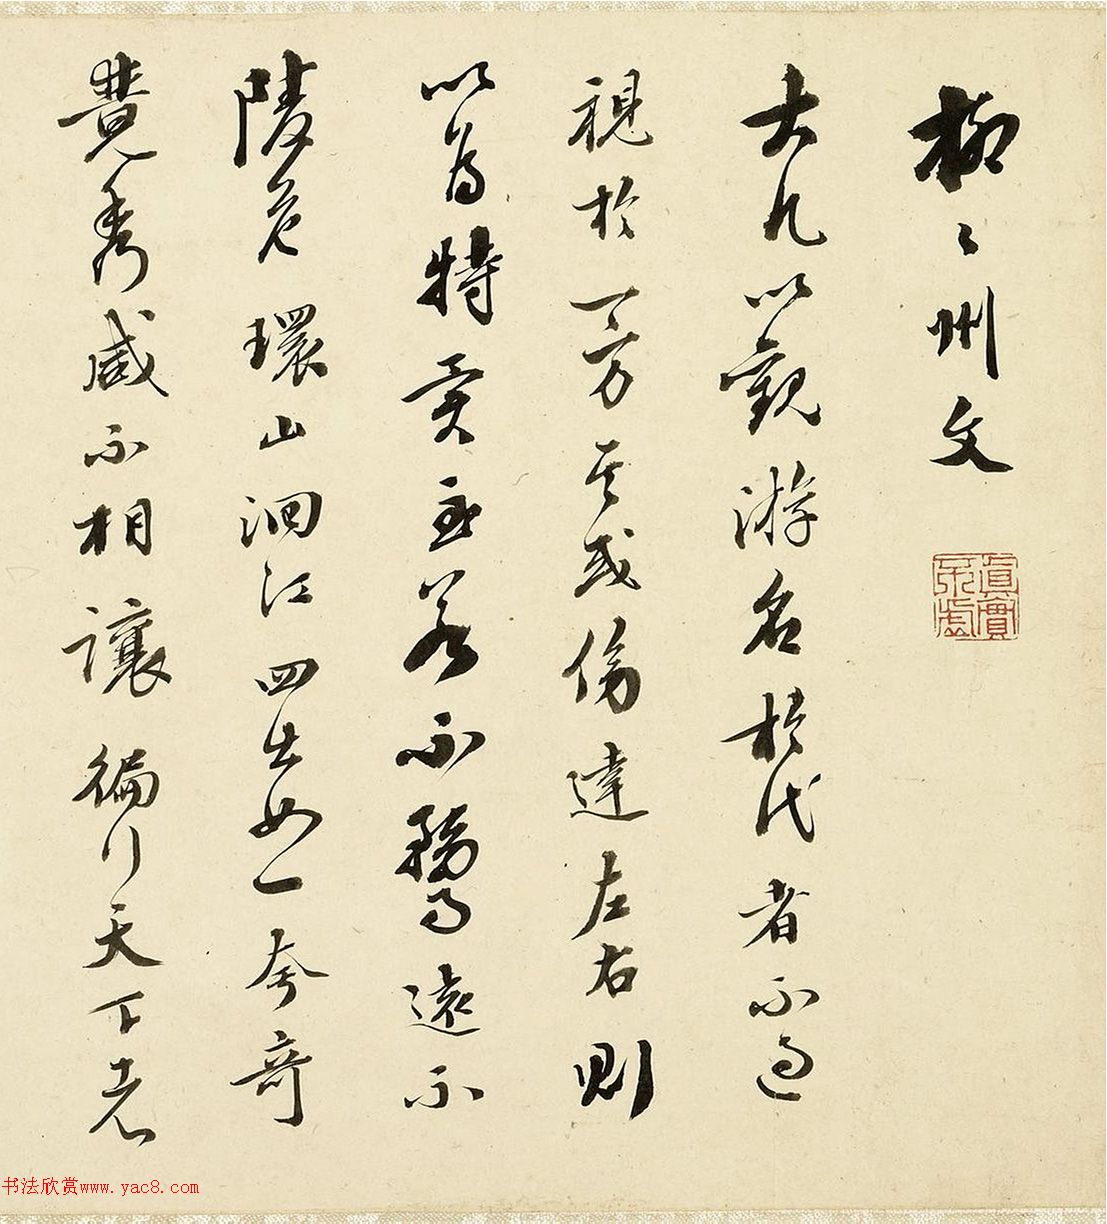 柳〻州文
大凡以觀游名於代者不過
視於一方其或傍達左右則
以為特異至若不騖遠不
陵危環山洄江四出如一夸奇
競秀咸不相讓徧行天下者
眞實不虛
书法欣赏www.yac8.com